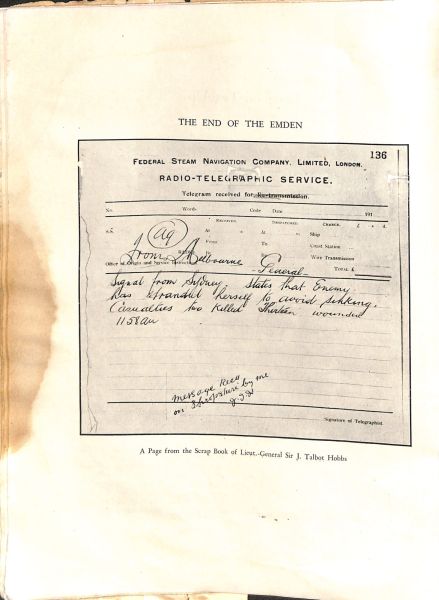 THE END OF THE EMDEN
136
FEDERAL STEAM NAVIGATION COMPANY, LIMITED, LONDON.
RADIO-TELEGRAPHIC SERVICE.
Telegram received for Re-transmission.
No. Words Code Date 191
RECEIVED. DESPATCHED. CHARGE. £ s. d.
At At Ship
From To Coast Station
By By Wire Transmission
TOTAL £
Office of Origin and Service Instructions
ag
From Melbourne General
Signal from Sydney states that Enemy
has stranded herself to avoid sinking.
Casualties two killed Thirteen wounded
1158am
message Recd
on Shropshire by me
J.T.H
Signature of Telegraphist
A Page from the Scrap Book of Lieut.-General Sir J. Talbot Hobbs